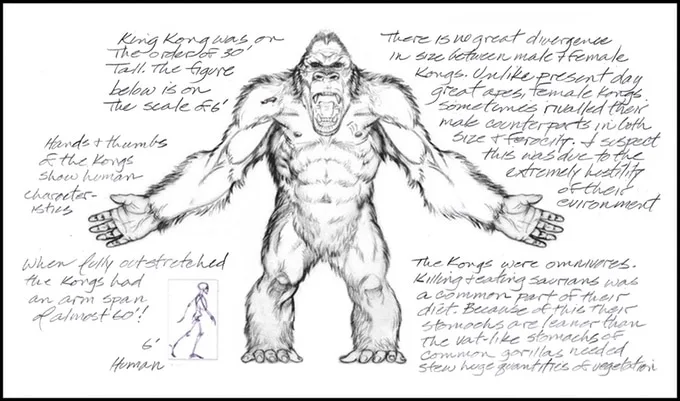 King Kong was on
The order of 30'
Tall. The figure
below is on
The scale of 6'
There is no great divergence
in size between male & female
Kongs. Unlike present day
great apes, female Kongs
sometimes rivalled their
male counterparts in both
size & ferocity. I suspect
this was due to the
extremely hostility
of their
evironment
Hands & thumbs
of the Kongs
show human
character-
istics
When fully outstretched
the Kongs had
an arm span
of almost 60'!
6'
Human
The Kongs were omnivores.
Killing & eating saurians was
a common part of their
diet. Because of this their
stomachs are leaner than
the vat-like stomachs of
common gorillas needed
stew huge quantities of vegetation